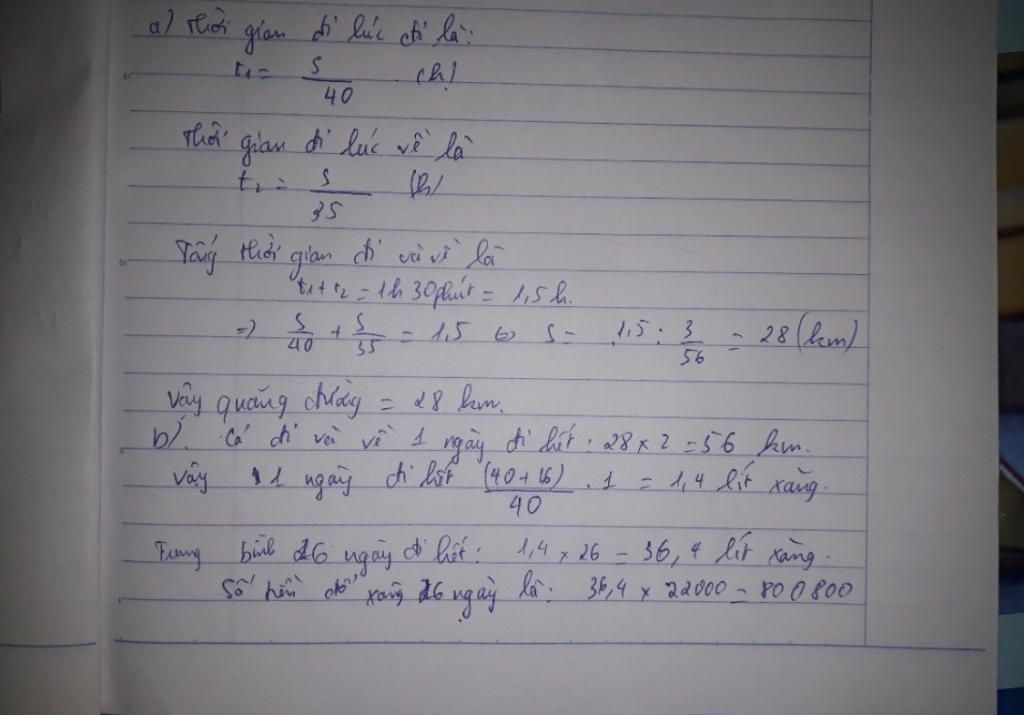 a) Thời gian đi lúc đi là:
t₁ = s/40 (h)
Thời gian đi lúc về là
t₂ = s/35 (h)
Tổng thời gian đi và về là
t₁ + t₂ = 1h 30 phút = 1,5 h.
=> s/40 + s/35 = 1,5 <=> s = 1,5 : 3/56 = 28 (km)
Vậy quãng đường = 28 km.
b) Cả đi và về 1 ngày đi hết : 28 x 2 = 56 km.
Vậy 1 ngày đi hết (40+16)/40 . 1 = 1,4 lít xăng.
Trung bình 26 ngày đi hết : 1,4 x 26 = 36,4 lít xăng.
Số tiền đổ xăng 26 ngày là : 36,4 x 22000 = 800800